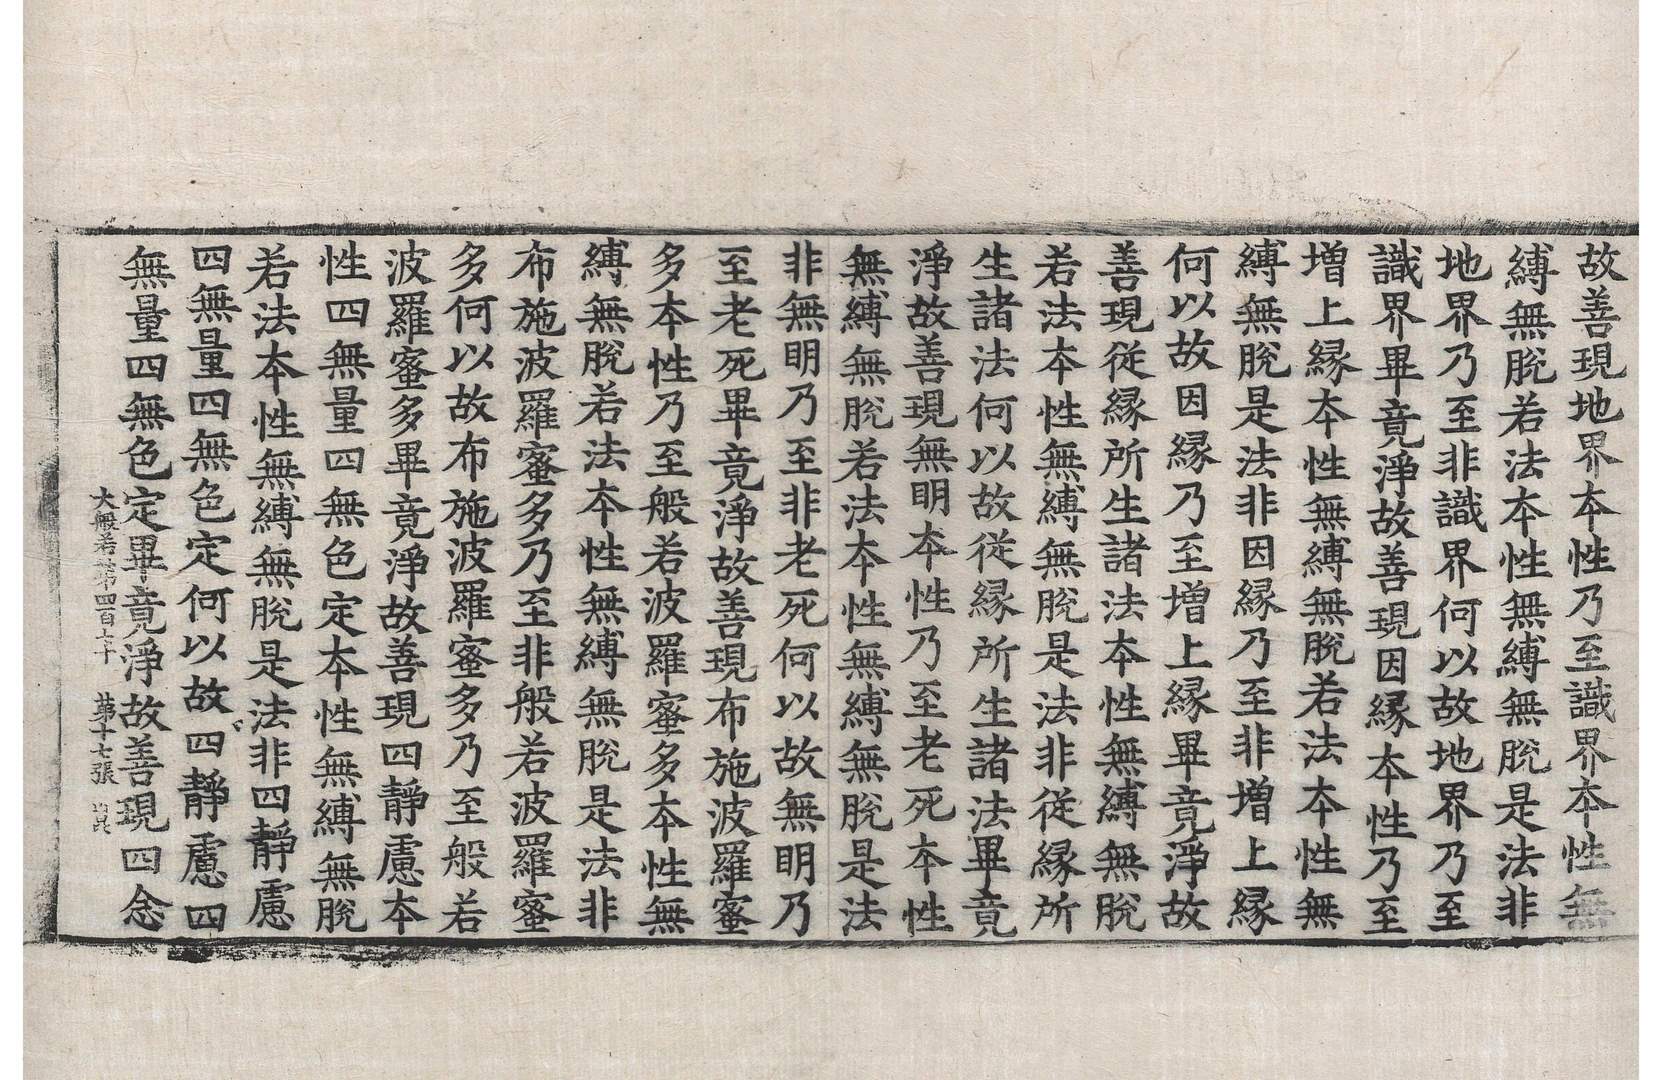 故善現地界本性乃至識界本性無
縛無脫若法本性無縛無脫是法非
地界乃至非識界何以故地界乃至
識界畢竟淨故善現因緣本性乃至
增上緣本性無縛無脫若法本性無
縛無脫是法非因緣乃至非增上緣
何以故因緣乃至增上緣畢竟淨故
善現從緣所生諸法本性無縛無脫
若法本性無縛無脫是法非從緣所
生諸法何以故從緣所生諸法畢竟
淨故善現無明本性乃至老死本性
無縛無脫若法本性無縛無脫是法
非無明乃至非老死何以故無明乃
至老死畢竟淨故善現布施波羅蜜
多本性乃至般若波羅蜜多本性無
縛無脫若法本性無縛無脫是法非
布施波羅蜜多乃至非般若波羅蜜
多何以故布施波羅蜜多乃至般若
波羅蜜多畢竟淨故善現四靜慮本
性四無量四無色定本性無縛無脫
若法本性無縛無脫是法非四靜慮
四無量四無色定何以故四靜慮四
無量四無色定畢竟淨故善現四念
大般若第四百七十 第十七張